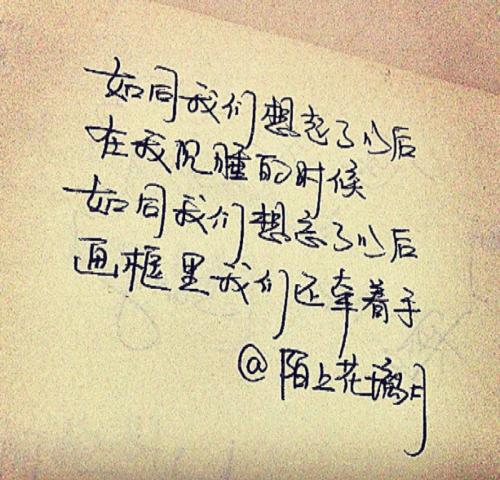 如同我们想起了以后
在我沉睡的时候
如同我们想忘了以后
画框里我们还牵着手
@陌上花璃月